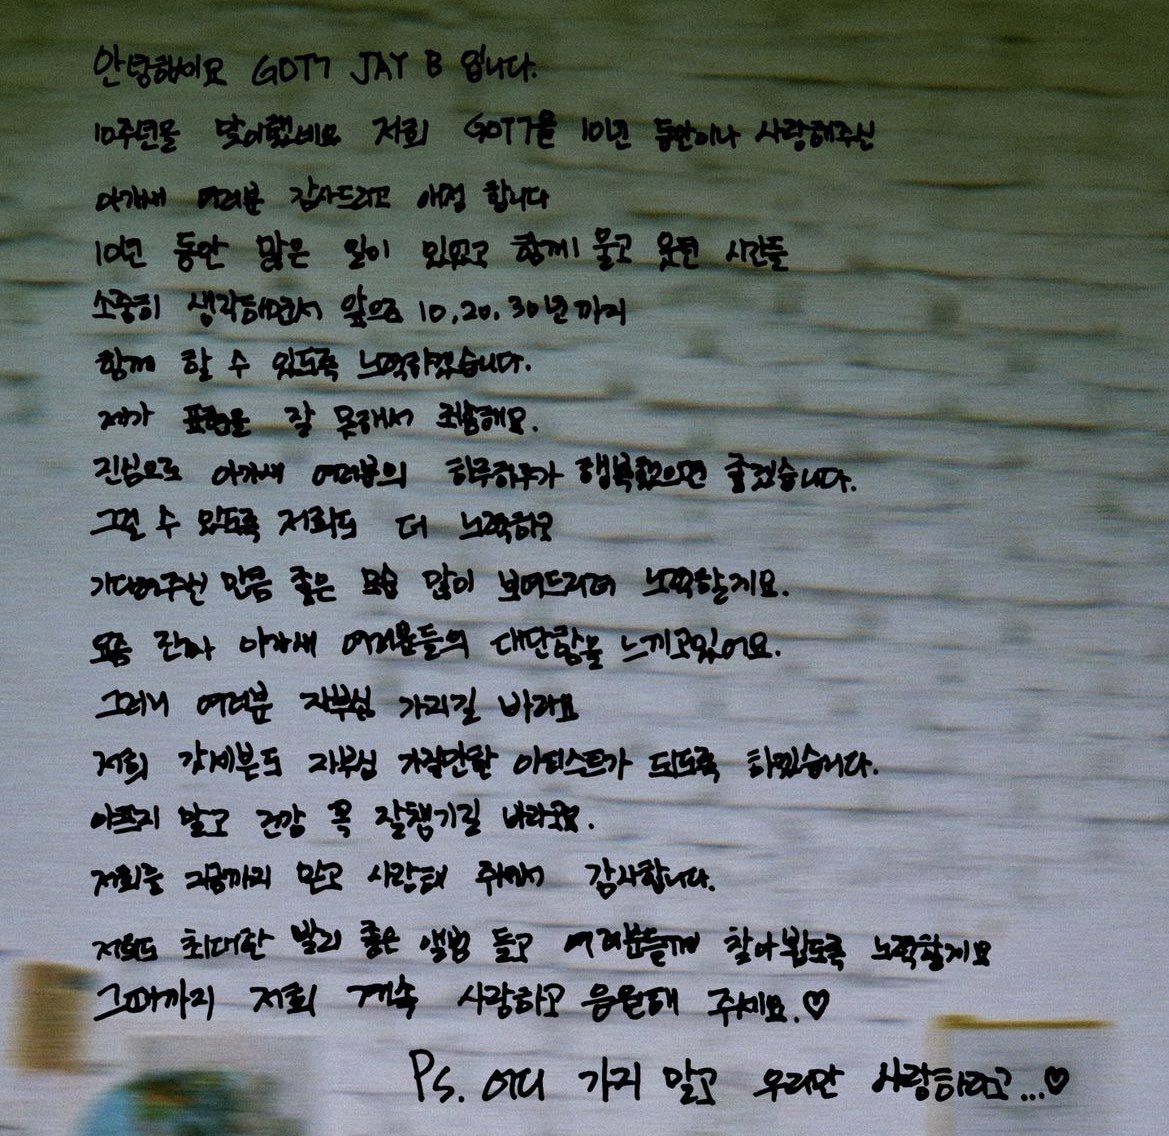 안녕하세요 GOT7 JAY B 입니다.
10주년을 맞이했네요 저희 GOT7을 10년 동안이나 사랑해주신
아가새 여러분 감사드리고 애정 합니다
10년 동안 많은 일이 있었고 함께 울고 웃던 시간들
소중히 생각하면서 앞으로 10, 20, 30년까지
함께 할 수 있도록 노력하겠습니다.
제가 표현을 잘 못해서 죄송해요.
진심으로 아가새 여러분의 하루하루가 행복했으면 좋겠습니다.
그럴 수 있도록 저희도 더 노력하고
기다려주신 만큼 좋은 모습 많이 보여드리려 노력할게요.
요즘 관하 아가새 여러분들의 대단함을 느끼고있어요.
그러니 여러분 자부심 가지길 바라요
저희 갓세븐도 자부심 가질만한 아티스트가 되도록 하겠습니다.
아프지 말고 건강 꼭 잘챙기길 바라고요.
저희를 지금까지 믿고 사랑해 줘서 감사합니다.
저희도 최대한 빨리 좋은 앨범 들고 여러분들께 찾아뵙도록 노력할게요
그때까지 저희 계속 사랑하고 응원해 주세요.♡
Ps. 어디 가지 말고 우리만 사랑하라고...♡